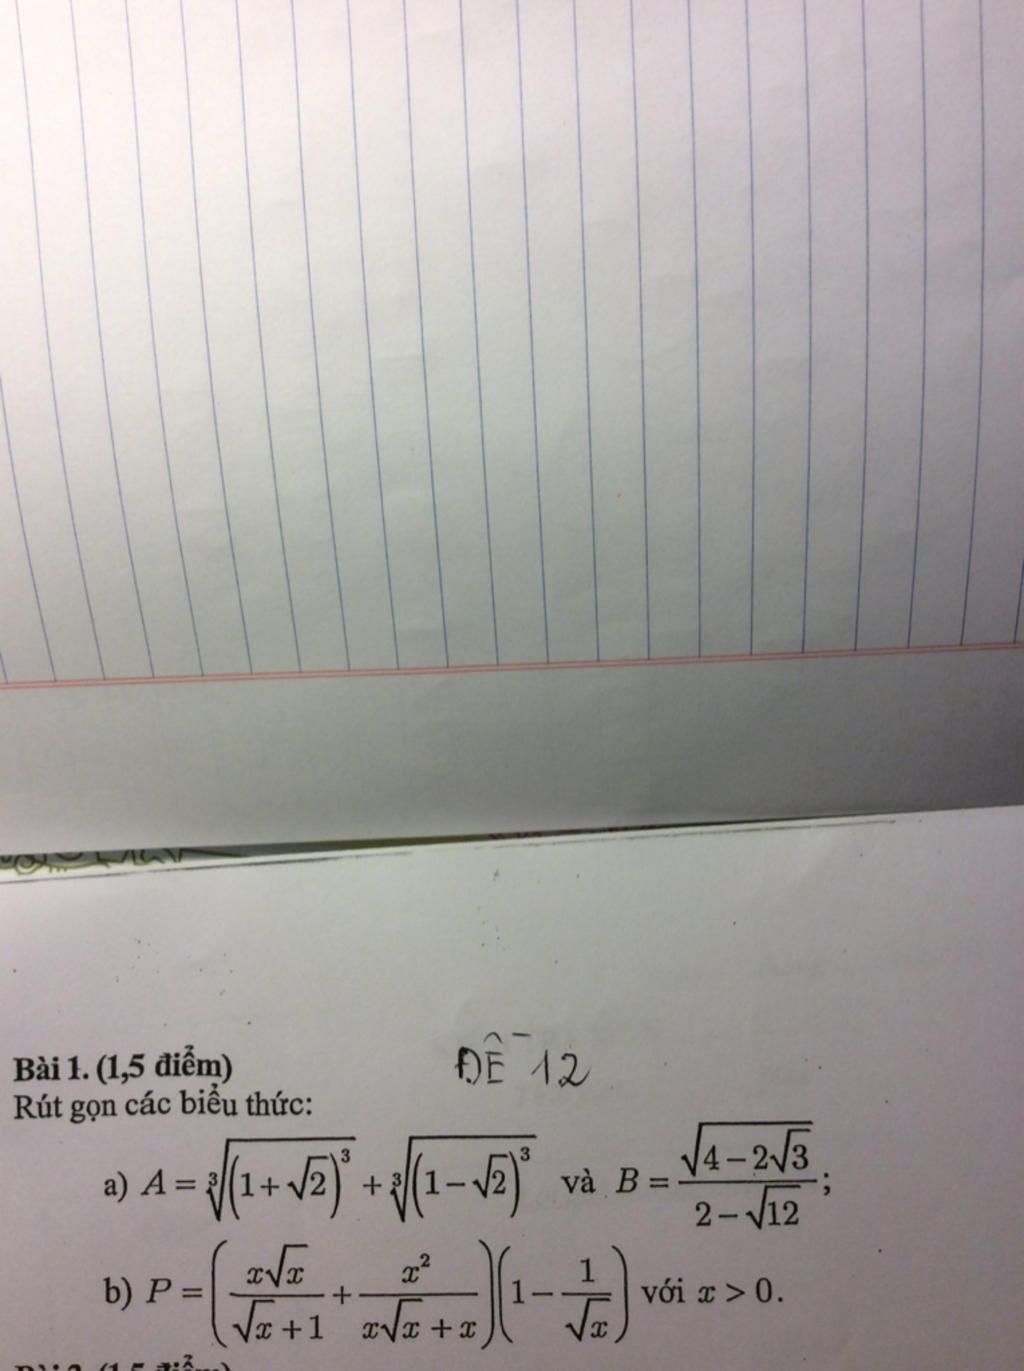 ĐỀ 12
Bài 1. (1,5 điểm)
Rút gọn các biểu thức:
a) A = ∛(1+√2)³ + ∛(1−√2)³ và B = √(4−2√3) / (2−√12);
b) P = (x√x/(√x+1) + x²/(x√x+x))(1−1/√x) với x > 0.